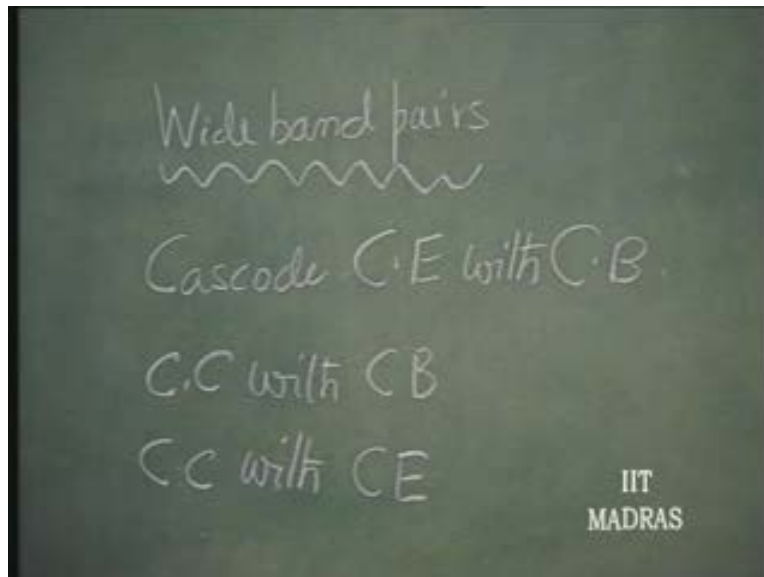 Wide band pairs
Cascode C.E with C.B.
C.C with CB
CC with CE
IIT
MADRAS